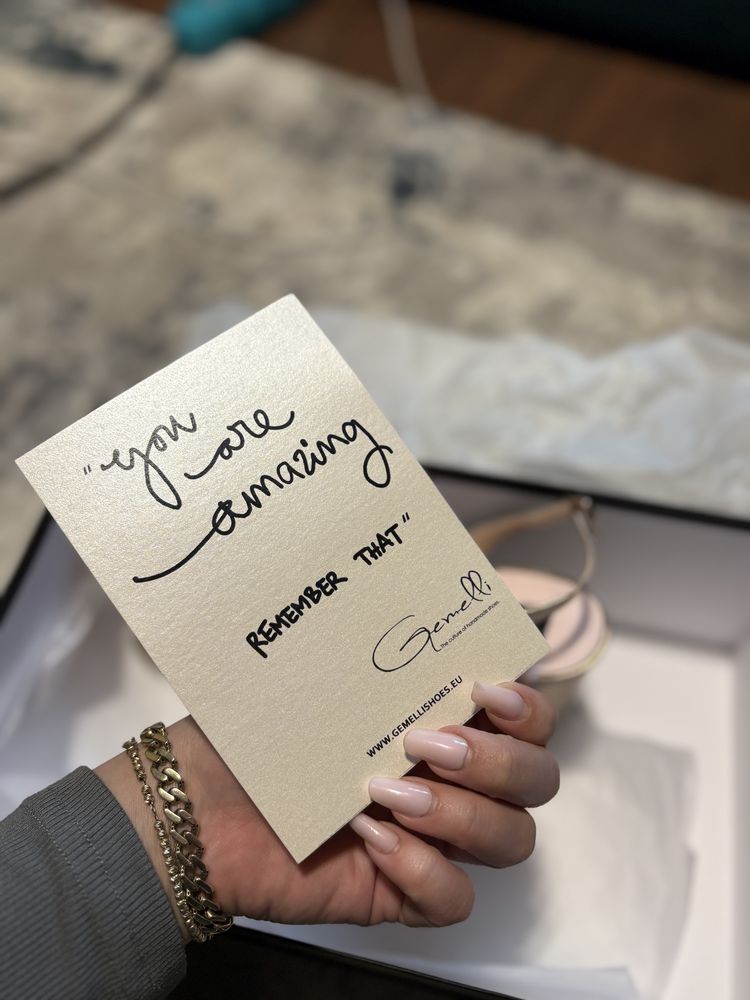 "you are
amazing
REMEMBER THAT"
Gemelli
The culture of handmade shoes.
WWW.GEMELLISHOES.EU